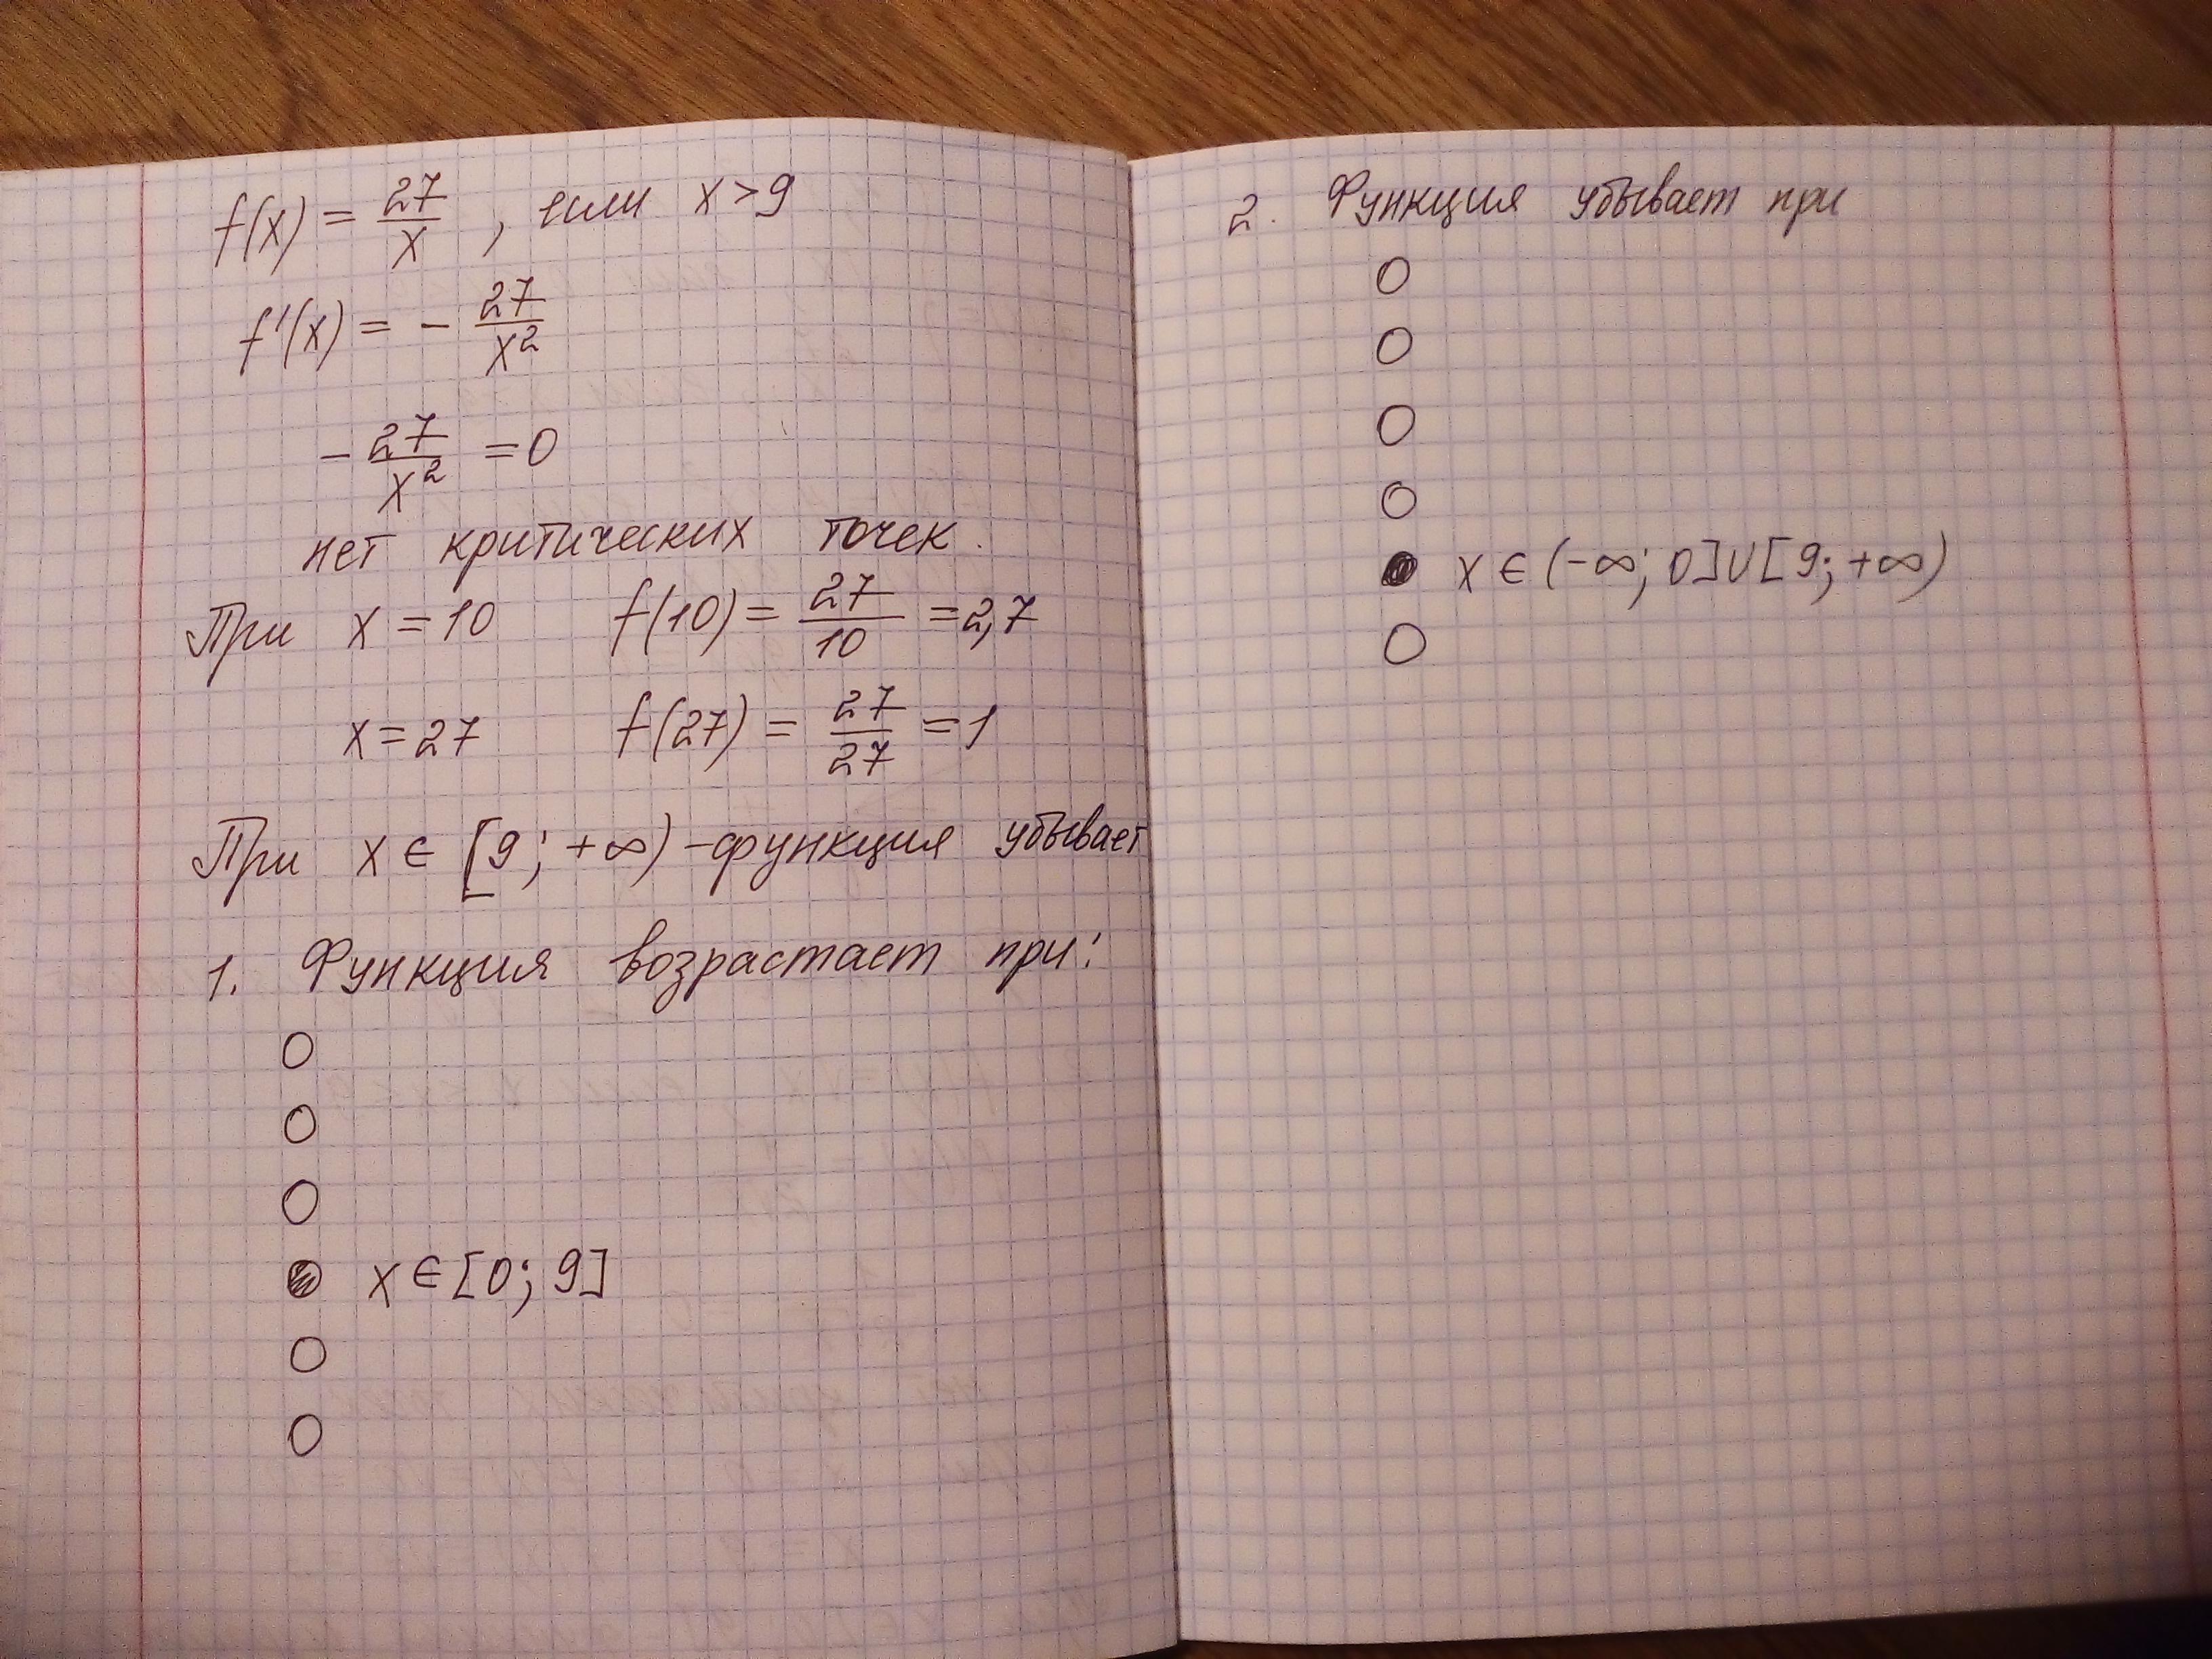 f(x) = 27/x , если x > 9
f'(x) = - 27/x²
- 27/x² = 0
нет критических точек.
При x = 10 f(10) = 27/10 = 2,7
x = 27 f(27) = 27/27 = 1
При x ∈ [9; +∞) - функция убывает
1. Функция возрастает при:
x ∈ [0; 9]
2. Функция убывает при
x ∈ (-∞; 0] ∪ [9; +∞)